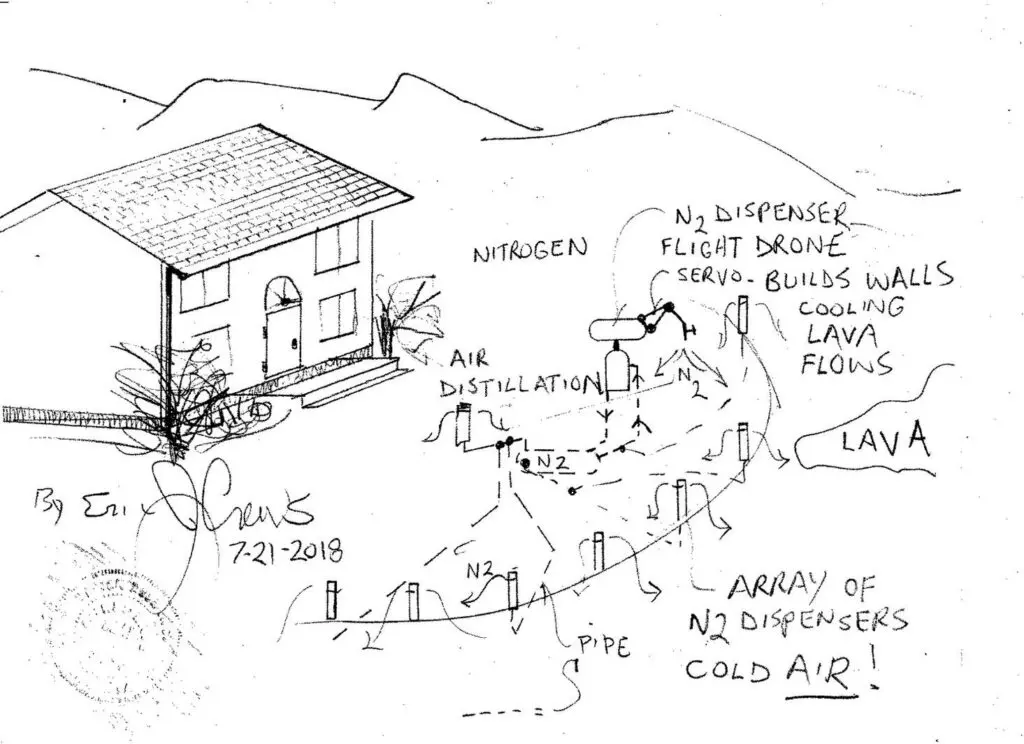 N2 DISPENSER
FLIGHT DRONE
NITROGEN
SERVO - BUILDS WALLS
COOLING
LAVA
FLOWS
AIR
DISTILLATION
N2
N2
LAVA
By Eric Crews
7-21-2018
N2
PIPE
ARRAY OF
N2 DISPENSERS
COLD AIR!